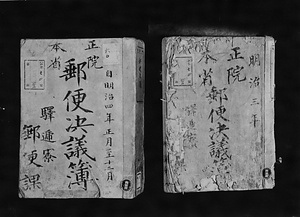 正院
本省
郵便決議簿
自明治四年正月至十二月
驛逓寮
郵便課
明治三年
正院
本省
郵便決議簿